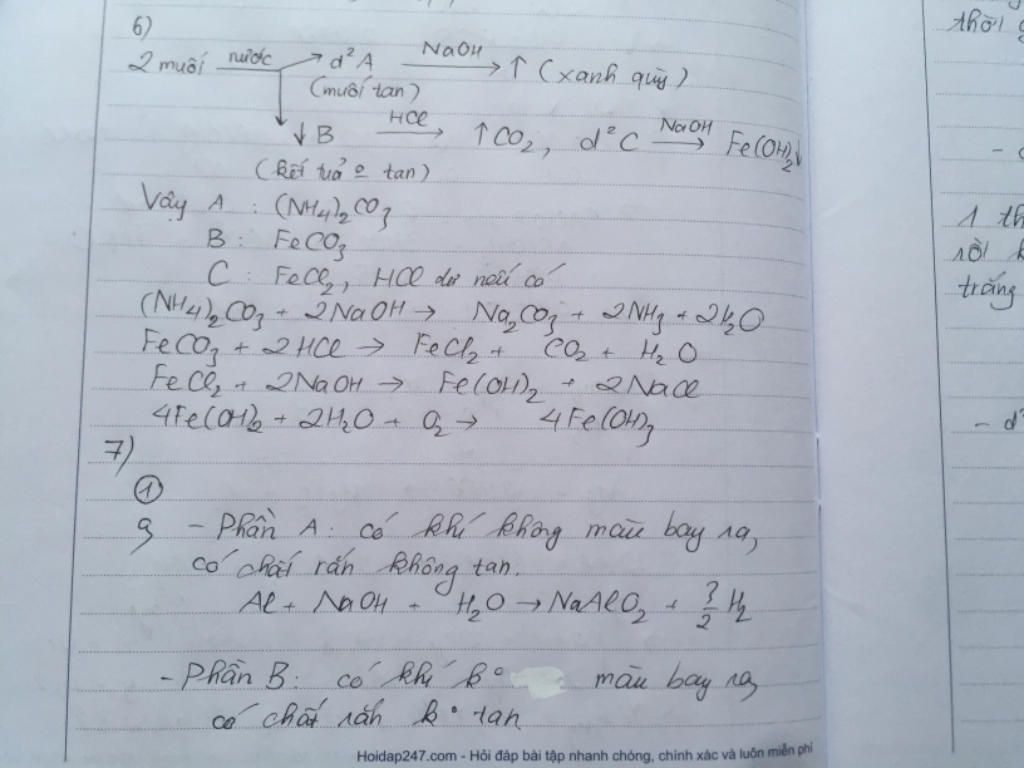 6)
2 muối nước → d² A NaOH → ↑ (xanh quỳ)
(muối tan)
↓ B HCl → ↑CO₂, d² C NaOH → Fe(OH)₂↓
(kết tủa o tan)
Vậy A : (NH₄)₂CO₃
B : FeCO₃
C : FeCl₂, HCl dư nếu có
(NH₄)₂CO₃ + 2NaOH → Na₂CO₃ + 2NH₃ + 2H₂O
FeCO₃ + 2HCl → FeCl₂ + CO₂ + H₂O
FeCl₂ + 2NaOH → Fe(OH)₂ + 2NaCl
4Fe(OH)₂ + 2H₂O + O₂ → 4Fe(OH)₃
7)
①
- Phần A : có khí không màu bay ra,
có chất rắn không tan.
Al + NaOH + H₂O → NaAlO₂ + 3/2 H₂
- Phần B : có khí k° màu bay ra,
có chất rắn k° tan
Hoidap247.com - Hỏi đáp bài tập nhanh chóng, chính xác và luôn miễn phí
thời
1 th
rồi k
trắng
- d²